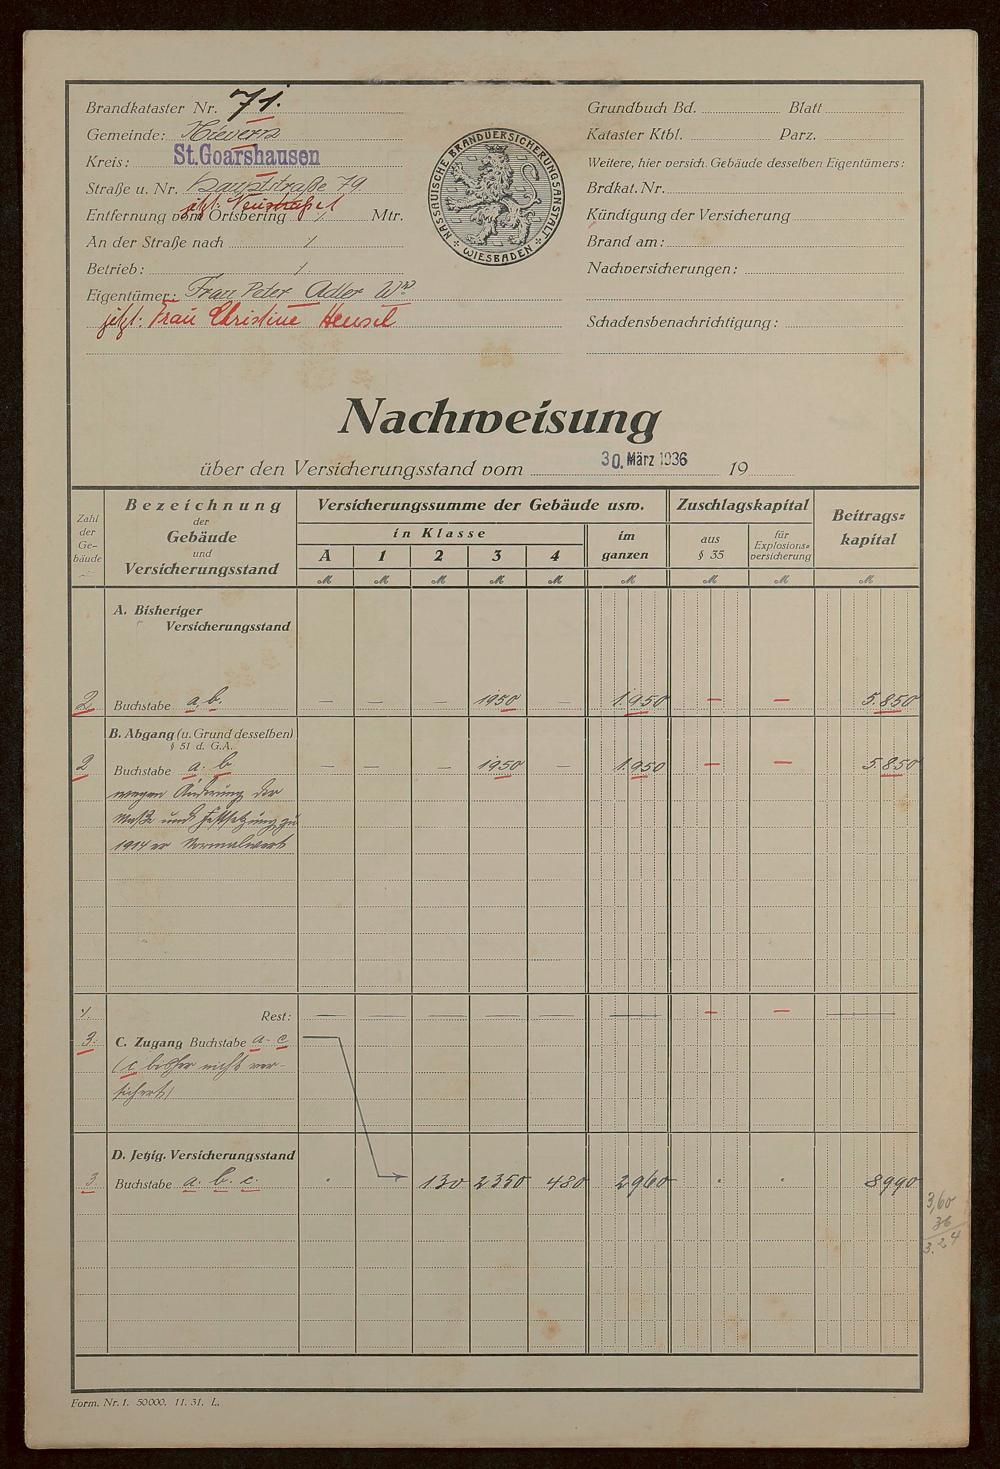 Brandkataster Nr. 71.
Gemeinde: Nievern
Kreis: St. Goarshausen
Straße u. Nr. Hauptstraße 79
jetzt:
Entfernung vom Ortsbering ./. Mtr.
An der Straße nach ./.
Betrieb: ./.
Eigentümer: Frau Peter Adler Ww
jetzt: Frau Christine Hensel
NASSAUISCHE BRANDVERSICHERUNGSANSTALT
WIESBADEN
Grundbuch Bd. Blatt
Kataster Ktbl. Parz.
Weitere, hier versich. Gebäude desselben Eigentümers:
Brdkat. Nr.
Kündigung der Versicherung
Brand am:
Nachversicherungen:
Schadensbenachrichtigung:
Nachweisung
über den Versicherungsstand vom 30. März 1936 19
Zahl der Ge- bäude
Bezeichnung der Gebäude und Versicherungsstand
Versicherungssumme der Gebäude usw.
in Klasse
A 1 2 3 4
im ganzen
Zuschlagskapital
aus § 35
für Explosions= versicherung
Beitrags= kapital
M M M M M M M M M
A. Bisheriger
Versicherungsstand
2 Buchstabe a, b. — — — 1950 — 1.950 — — 5.850
B. Abgang (u. Grund desselben)
§ 51 d. G.A.
2 Buchstabe a. b — — — 1950 — 1.950 — — 5.850
wegen Änderung der
Maße und Festsetzung zu
1914er Normalwert
./. Rest: — — — — — — — — —
3. C. Zugang Buchstabe a - c
(c bisher nicht ver-
sichert)
D. Jetzig. Versicherungsstand
3 Buchstabe a. b. c. . 130 2350 480 2960 . . 8990
3,60
36
3.24
Form. Nr. 1. 50000. 11. 31. L.